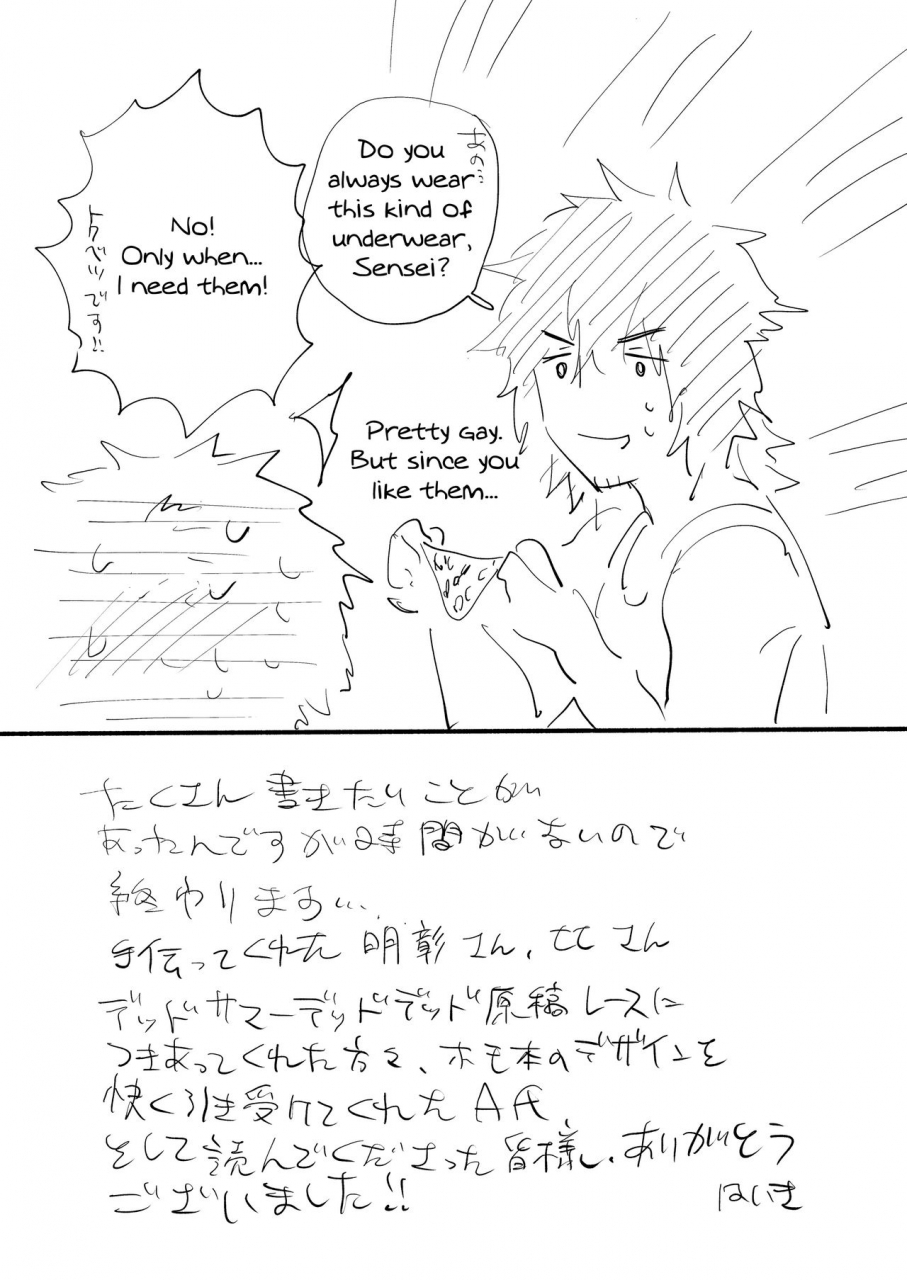 あの…
Do you
always wear
this kind of
underwear,
Sensei?
No!
Only when...
I need them!
トクベツです!!
Pretty gay.
But since you
like them...
たくさん書きたいことが
あったんですが時間がないので
終わります…
手伝ってくれた明彰さん、ヒヒさん
デッドサマーデッドデッド原稿レースに
つきあってくれた方々、ホモ本のデザインを
快く引き受けてくれたA氏、
そして読んでくださった皆様、ありがとう
ございました!!
はいき